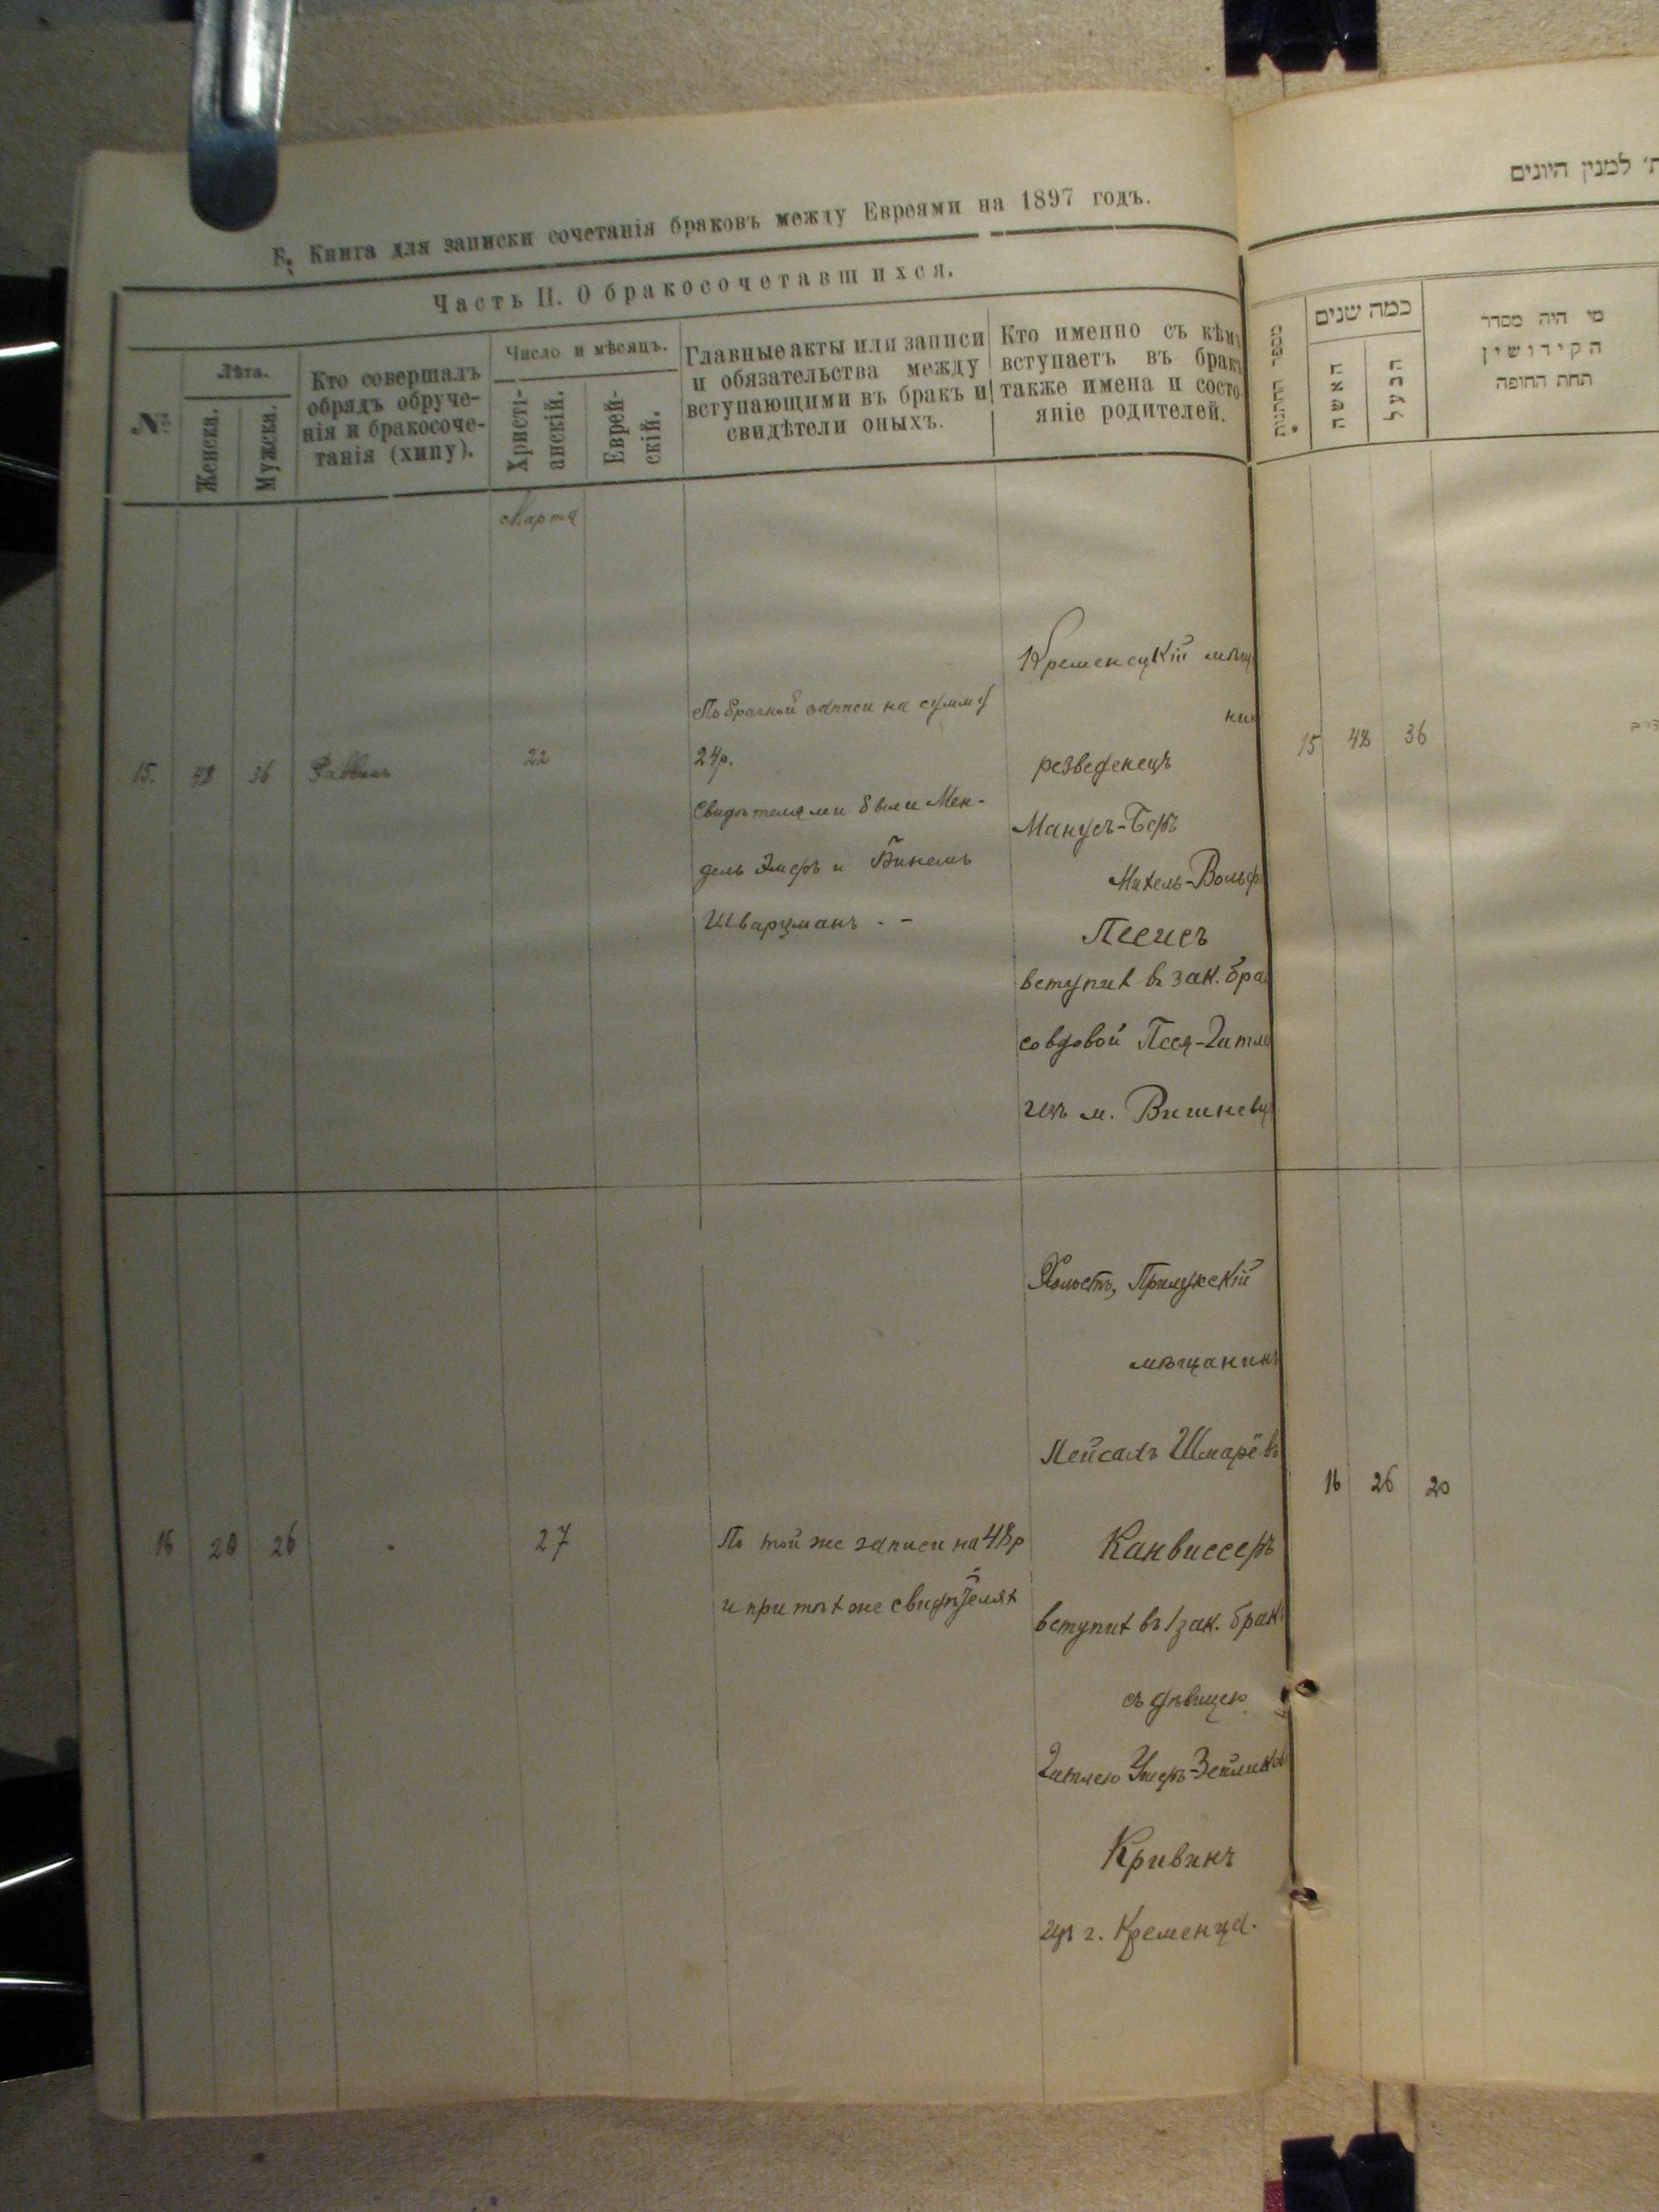 Б. Книга для записки сочетанія браковъ между Евреями на 1897 годъ.
Часть II. О бракосочетавшихся.
№
Лѣта.
Женска.
Мужска.
Кто совершалъ
обрядъ обруче-
нія и бракосоче-
танія (хипу).
Число и мѣсяцъ.
Христі-
анскій.
Еврей-
скій.
Главные акты или записи
и обязательства между
вступающими въ бракъ и
свидѣтели оныхъ.
Кто именно съ кѣмъ
вступаетъ въ бракъ
также имена и состо-
яніе родителей.
Марта
15. 48 36 Раввинъ 22
По брачной записи на сумму
24р.
Свидѣтелями были Мен-
дель Эмеръ и
Шварцманъ . -
Кременецкій мѣща
нин
резведенецъ
Манусъ-Беръ
Михель-Вольф
вступих въ зак. бра
со вдовой Песя-Гитл
изъ м. Вишневц
16 20 26 27
По той же записи на 48р
и при тѣх же свидѣтелях
Холостъ, Прилужскій
мѣщанинъ
Пейсахъ Шмарёвъ
Канвиссеръ
вступих въ 1 зак. брак
съ дѣвицею
Гитлею
Кривинъ
изъ г. Кременца.
ת' למנין היונים
מספר החתונות
כמה שנים
האשה
הבעל
מי היה מסדר
הקידושין
תחת החופה
15 48 36
16 26 20